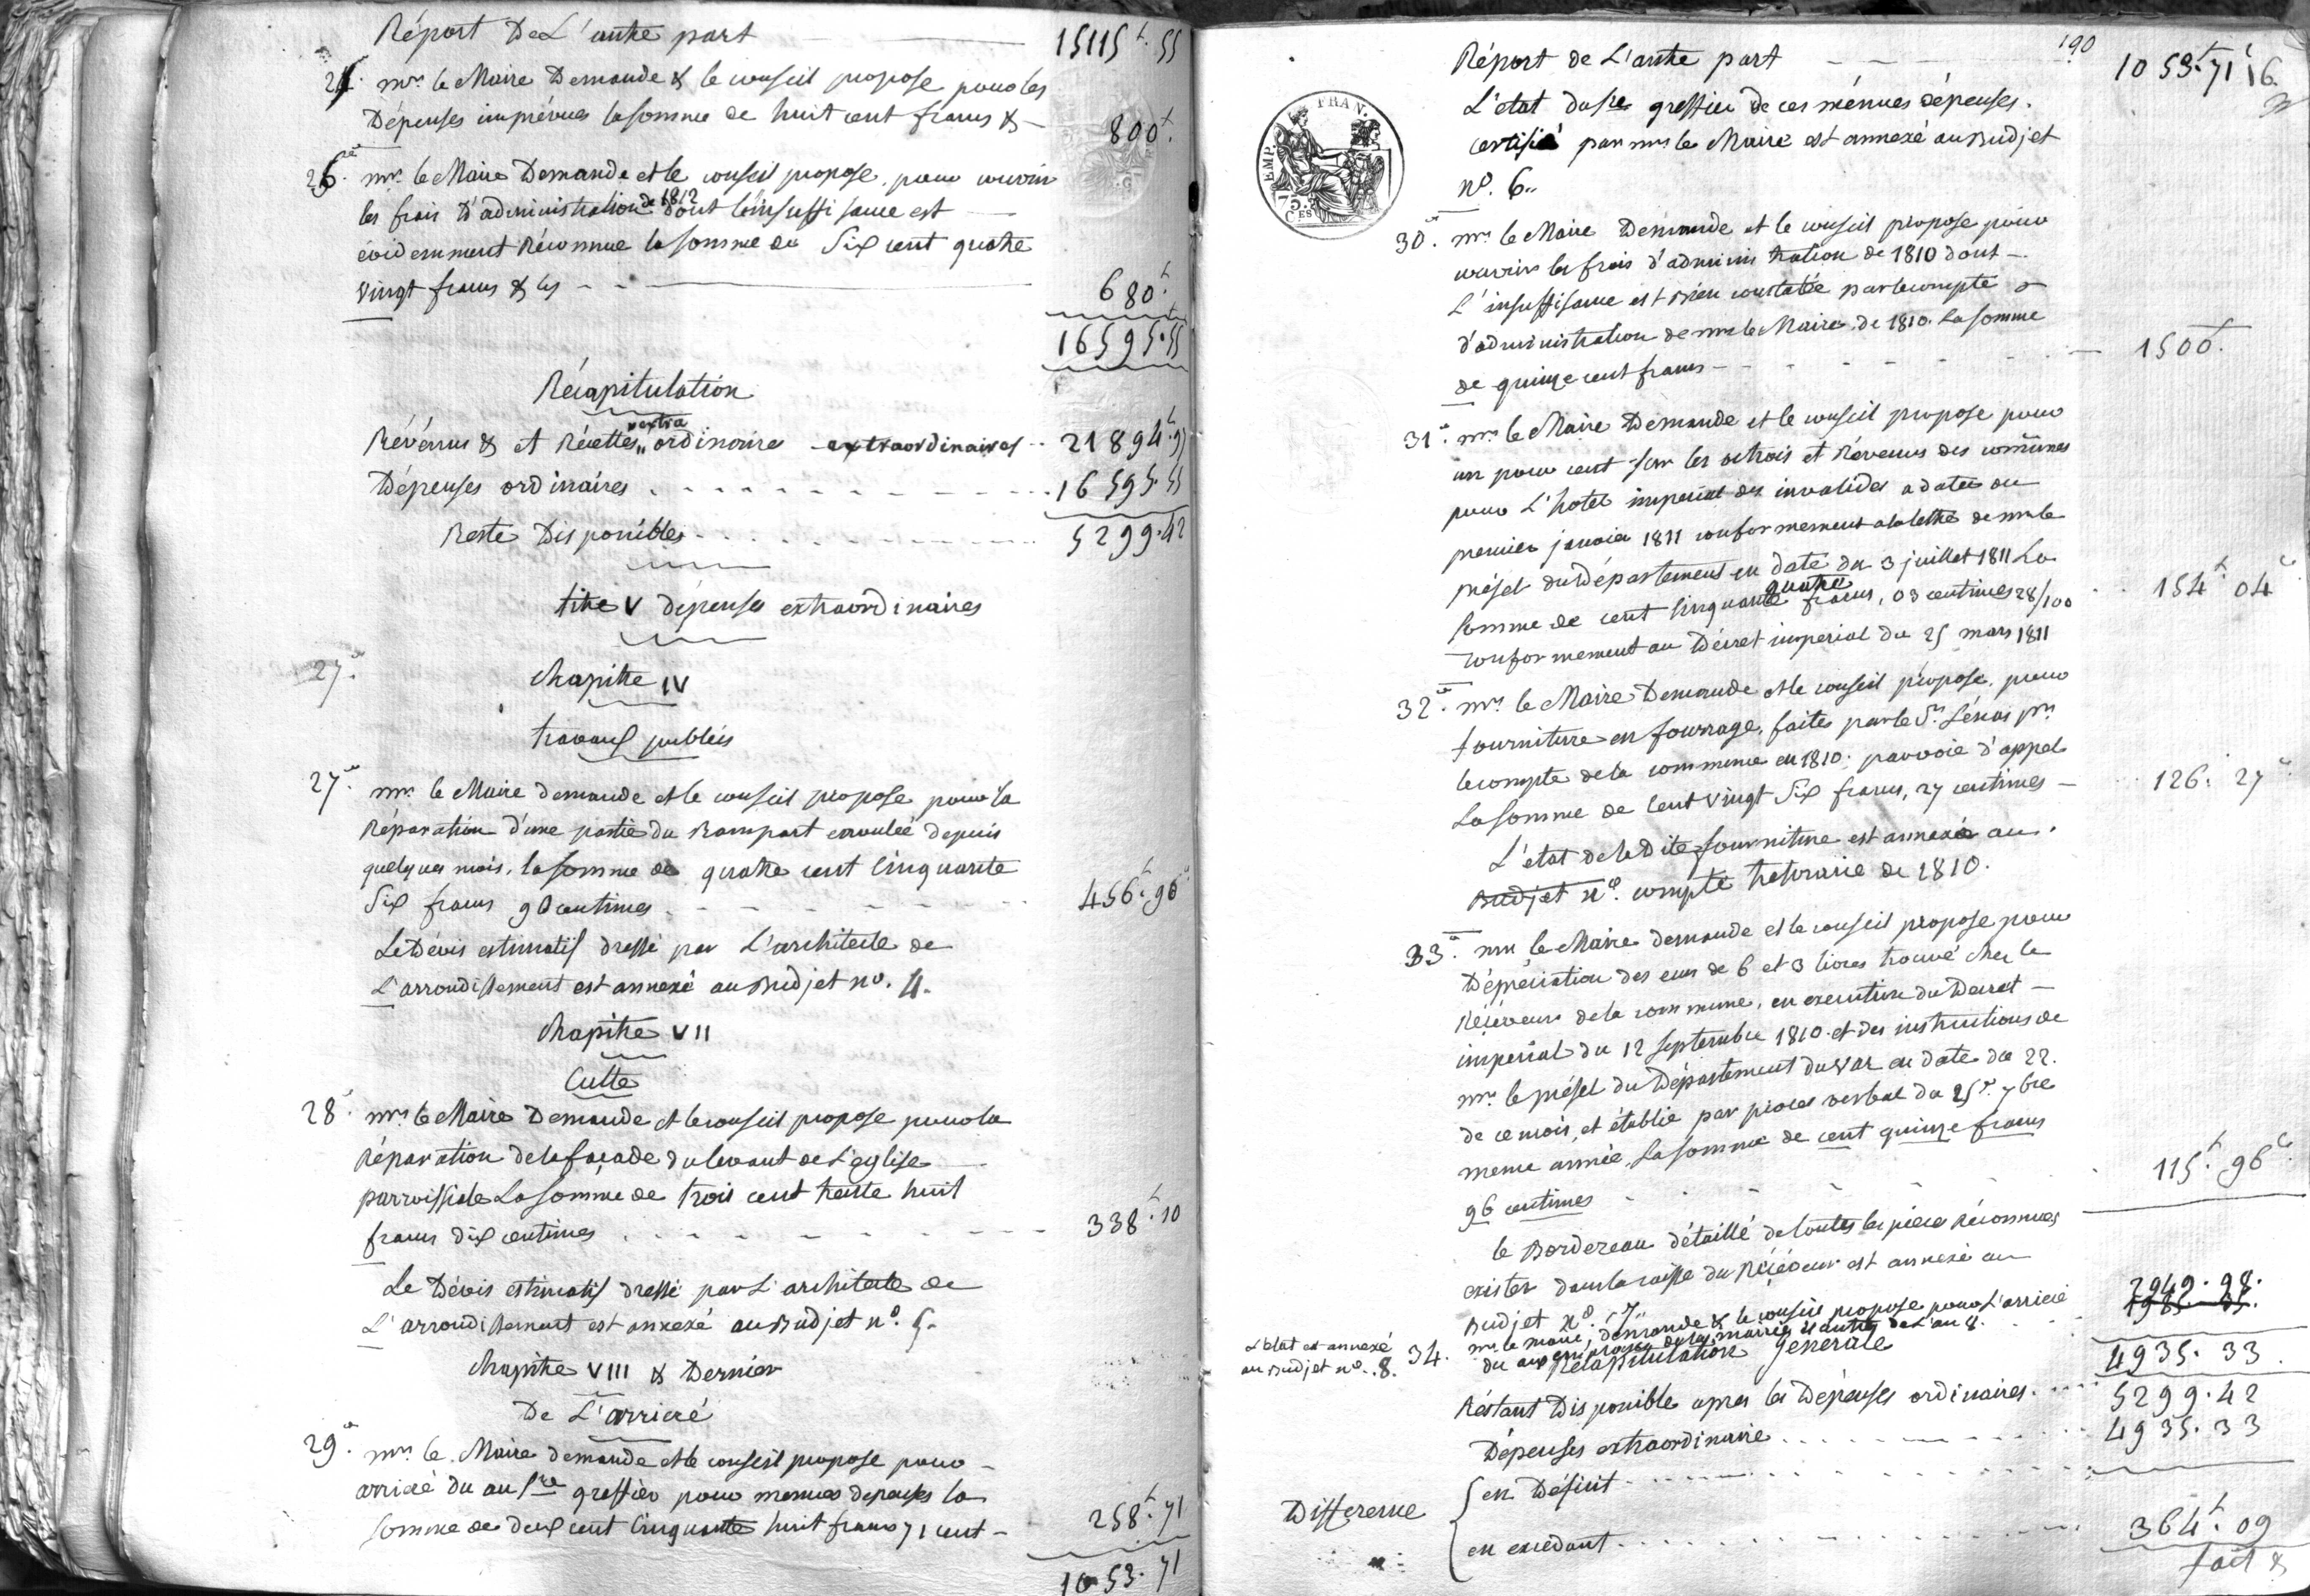 Réport De L'autre part 15115 f. 55
25. mr. le Maire Demande & le conseil propose pour les
Dépenses imprévues la somme de huit cent francs & 800 f.
26. mr. le Maire Demande et le conseil propose, pour couvrir
les frais D'administration de 1812 dont l'insuffisance est
évidemment Réconnue la somme de Six cent quatre
vingt francs & 680 f.
16595.55
Récapitulation
Révénus & et Récettes extra ordinaire extraordinaires 21894 f. 97
Dépenses ordinaires 16595.55
Reste Disponible 5299.42
titre V dépenses extraordinaires
27.
Chapitre IV
travaux publics
27. mr. le Maire demande et le conseil propose pour la
Réparation d'une partie du Rampart écroulée depuis
quelques mois, la somme de quatre cent Cinquante
Six francs 90 centimes 456 f. 90
Le Dévis estimatif dressé par L'architecte de
L'arrondissement est annexé au Budjet no. 4.
Chapitre VII
Culte
28. mr. le Maire Demande et le conseil propose pour la
Réparation de la façade du levant de L'eglise
parroissiale La somme de trois cent trente huit
francs dix centimes 338 f. 10
Le Dévis estimatif dressé par L'architecte de
L'arrondissement est annexé au Budjet no. 5.
Chapitre VIII & Dernier
De L'arrieré
29. mr. le Maire demande et le conseil propose pour
arrieré du au Sre greffier pour menues depenses la
Somme de deux cent Cinquante huit francs 71 cent 258 f. 71
1053.71
190
Réport de L'autre part 1053 f. 71 c
L'etat du Sre greffier de ces ménues dépenses.
certifié par mr le Maire est annexé au Budjet
no. 6.
FRAN.
EMP.
75. CES
30. mr. le Maire Demande et le conseil propose pour
couvrir les frais d'administration de 1810 dont
L'insuffisance est Bien constatée par le compte
d'administration de mr le Maire de 1810. La somme
de quinze cent francs 1500 f.
31. mr. le Maire Demande et le conseil propose pour
un pour cent sur les octrois et Révenus des communes
pour L'hotel imperial des invalides a dater du
premier janvier 1811 conformement a la lettre de mr le
préfet du Département en date du 3 juillet 1811 La
Somme de cent Cinquante quatre francs, 03 centimes 28/100 154 f. 04 c
conformement au Décret imperial du 25 mars 1811
32. mr. le Maire Demande et le conseil propose, pour
fourniture en fourrage, faites par le Sr. pr.
le compte de la commune en 1810. par voie d'appel
La somme de Cent vingt Six francs, 27 centimes 126. 27 c
L'etat de la Dite fourniture est annexée au
Budjet no. compte de 1810.
33. mr le Maire demande et le conseil propose pour
Dépréciation des ecus de 6 et 3 livres trouvé chez le
Récéveur de la commune, en execution du Décret
imperial du 12 septembre 1810 et des instructions de
mr. le préfet du Département du Var en date du 22.
de ce mois, et établie par procès verbal du 25 7bre
meme année, La somme de cent quinze francs
96 centimes 115 f. 96 c.
le Bordereau détaillé de toutes les pièces Réconnues
exister dans la caisse du Récéveur est annexé au
Budjet No. 7.
L'Etat est annexé
au Budjet no. 8.
34. mr. le maire, demande & le conseil propose pour L'arrieré
du aux employés de la mairie & autres de L'an 8. 1949.98.
4935.33
Récapitulation générale
Réstant Disponible apres les Dépenses ordinaires 5299.42
Dépenses extraordinaire 4935.33
Difference
en Déficit
en excédant 364 f. 09
fait &